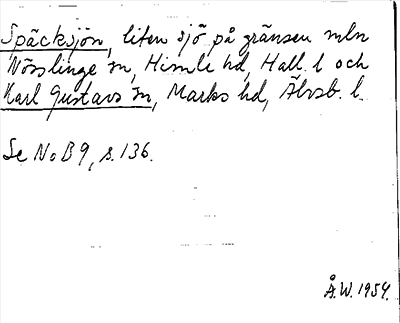 Späcksjön, liten sjö på gränsen mln
Nösslinge sn, Himle hd, Hall. l och
Karl Gustavs sn, Marks hd, Älvsb. l.
Se NoB 9, s. 136.
Å.W. 1954.